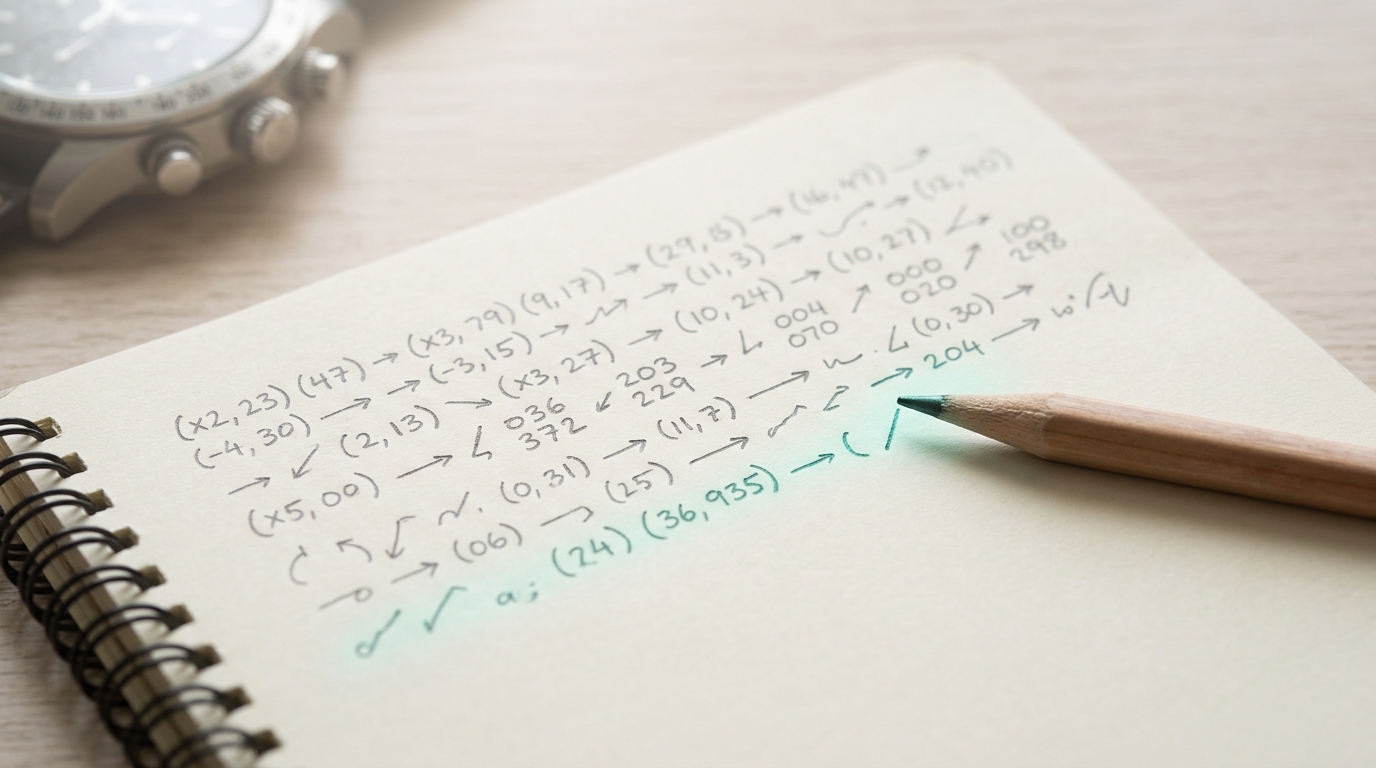 (x2,23) (47) → (x3,79) (9,17) → (29,8) → (16,47) →
(-4,30) → → (-3,15) → → (11,3) → → (12,40)
→ ↙ (2,13) → (x3,27) → (10,24) → (10,27) →
(x5,00) → 036 ↙ 203 → 004 ↗ 000 ↗ 100
372 229 070 020 298
(0,31) → (11,7) → (0,30) →
→ (06) → (25) → → 204 →
a; (24) (36,935) → (